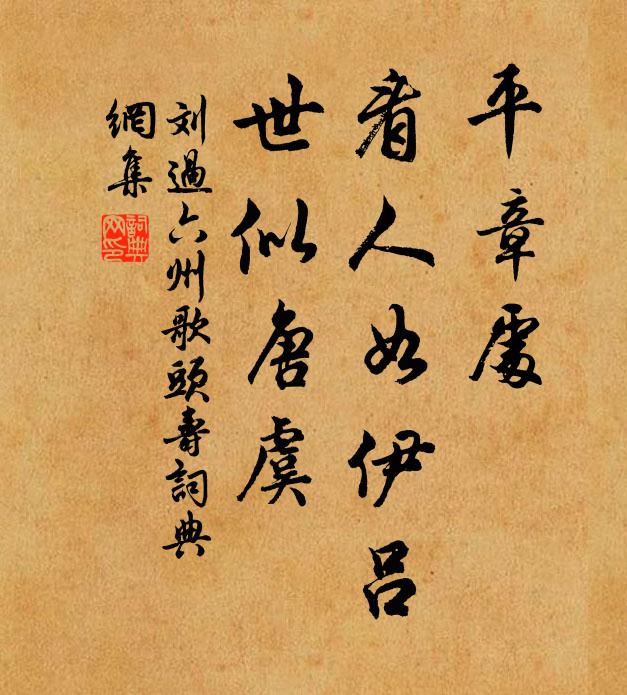 平章處
看人如伊呂
世似唐虞
刘過六州歌頭壽詞典
網集
詞典网印